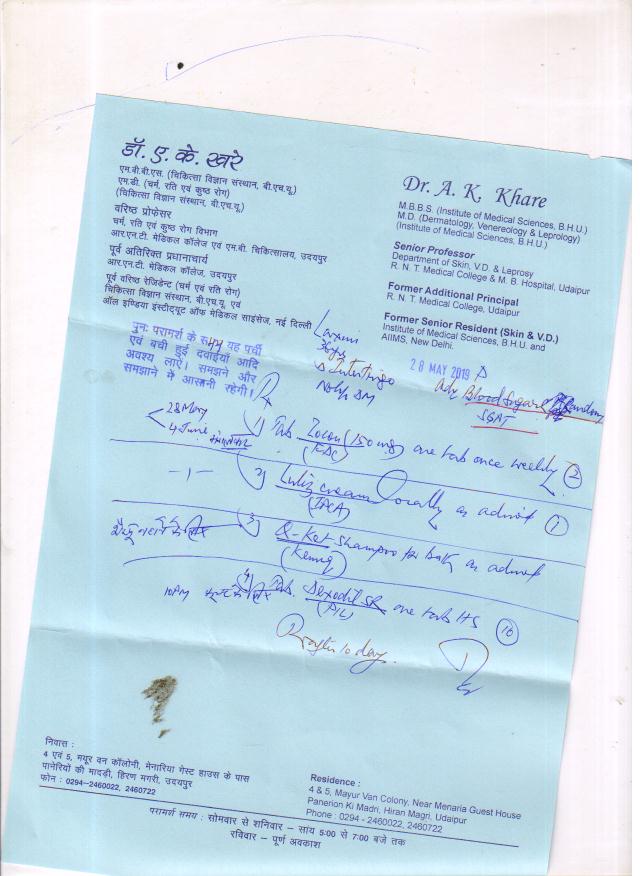 डॉ. ए. के. खरे
एम.बी.बी.एस. (चिकित्सा विज्ञान संस्थान, बी.एच.यू.)
एम.डी. (चर्म, रति एवं कुष्ठ रोग)
(चिकित्सा विज्ञान संस्थान, बी.एच.यू.)
वरिष्ठ प्रोफेसर
चर्म, रति एवं कुष्ठ रोग विभाग
आर.एन.टी. मेडिकल कॉलेज एवं एम.बी. चिकित्सालय, उदयपुर
पूर्व अतिरिक्त प्रधानाचार्य
आर.एन.टी. मेडिकल कॉलेज, उदयपुर
पूर्व वरिष्ठ रेजिडेन्ट (चर्म एवं रति रोग)
चिकित्सा विज्ञान संस्थान, बी.एच.यू. एवं
ऑल इण्डिया इंस्टीट्यूट ऑफ मेडिकल साइंसेज, नई दिल्ली
Dr. A. K. Khare
M.B.B.S. (Institute of Medical Sciences, B.H.U.)
M.D. (Dermatology, Venereology & Leprology)
(Institute of Medical Sciences, B.H.U.)
Senior Professor
Department of Skin, V.D. & Leprosy
R. N. T. Medical College & M. B. Hospital, Udaipur
Former Additional Principal
R. N. T. Medical College, Udaipur
Former Senior Resident (Skin & V.D.)
Institute of Medical Sciences, B.H.U. and
AIIMS, New Delhi.
पुनः परामर्श के समय यह पर्ची
एवं बची हुई दवाईयाँ आदि
अवश्य लाएँ। समझने और
समझाने में आसानी रहेगी।
Intertrigo
DM
28 MAY 2019
Adv Blood Sugar Random
SGPT
28 May
4 June
1) Tab Zocon (150 mg) one tab once weekly 2
(FDC)
2) Luliz cream locally as advised 1
3) Q-Ket shampoo for bath as advised
4) Tab. SR one tab HS 10
10 PM
R after 10 days.
निवास :
4 एवं 5, मयूर वन कॉलोनी, मेनारिया गेस्ट हाउस के पास
पानेरियों की मादड़ी, हिरण मगरी, उदयपुर
फोन : 0294-2460022, 2460722
Residence :
4 & 5, Mayur Van Colony, Near Menaria Guest House
Panerion Ki Madri, Hiran Magri, Udaipur
Phone : 0294 - 2460022, 2460722
परामर्श समय : सोमवार से शनिवार – सायं 5:00 से 7:00 बजे तक
रविवार – पूर्ण अवकाश